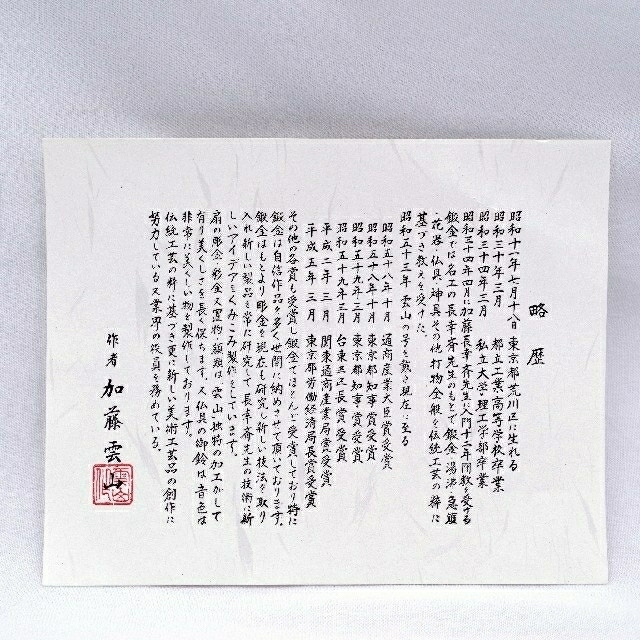 略歴
昭和十一年七月十八日 東京都荒川区に生れる
昭和三十年三月 都立工業高等学校卒業
昭和三十四年三月 私立大学・理工学部卒業
昭和三十四年四月に加藤長幸斉先生に入門十二年間教を受ける
鈑金では名工の長幸斉先生のもとで鈑金・湯沸・急須
・花器・仏具・神具その他打物全般を伝統工芸の粋に
基づき教えを受けた。
昭和五十三年 雲山の号を戴き現在に至る
昭和五十八年十月 通商産業大臣賞受賞
昭和五十八年十月 東京都知事賞受賞
昭和五十九年三月 東京都知事賞受賞
昭和五十九年三月 台東区長賞受賞
平成二年三月 関東通商産業局賞受賞
平成五年三月 東京都労働経済局長賞受賞
その他の各賞も受賞し鈑金でほとんど受賞しており特に
鈑金は自信作品を多く世間に納めさせて頂いております。
鈑金はもとより彫金を現在も研究し新しい技法を取り
入れ新しい製品を常に研究して長幸斉先生の技術に新
しいアイデアをくみこみ製作をしています。
扇の彫金・彩金又置物・額類は雲山・独特の加工がして
有り美くしさを長く保ちます。又仏具の御鈴は音色は
非常に美くしい物を製作しております。
伝統工芸の粋に基づき更に新しい美術工芸品の創作に
努力している。又業界の役員を務めている。
作者 加藤雲山